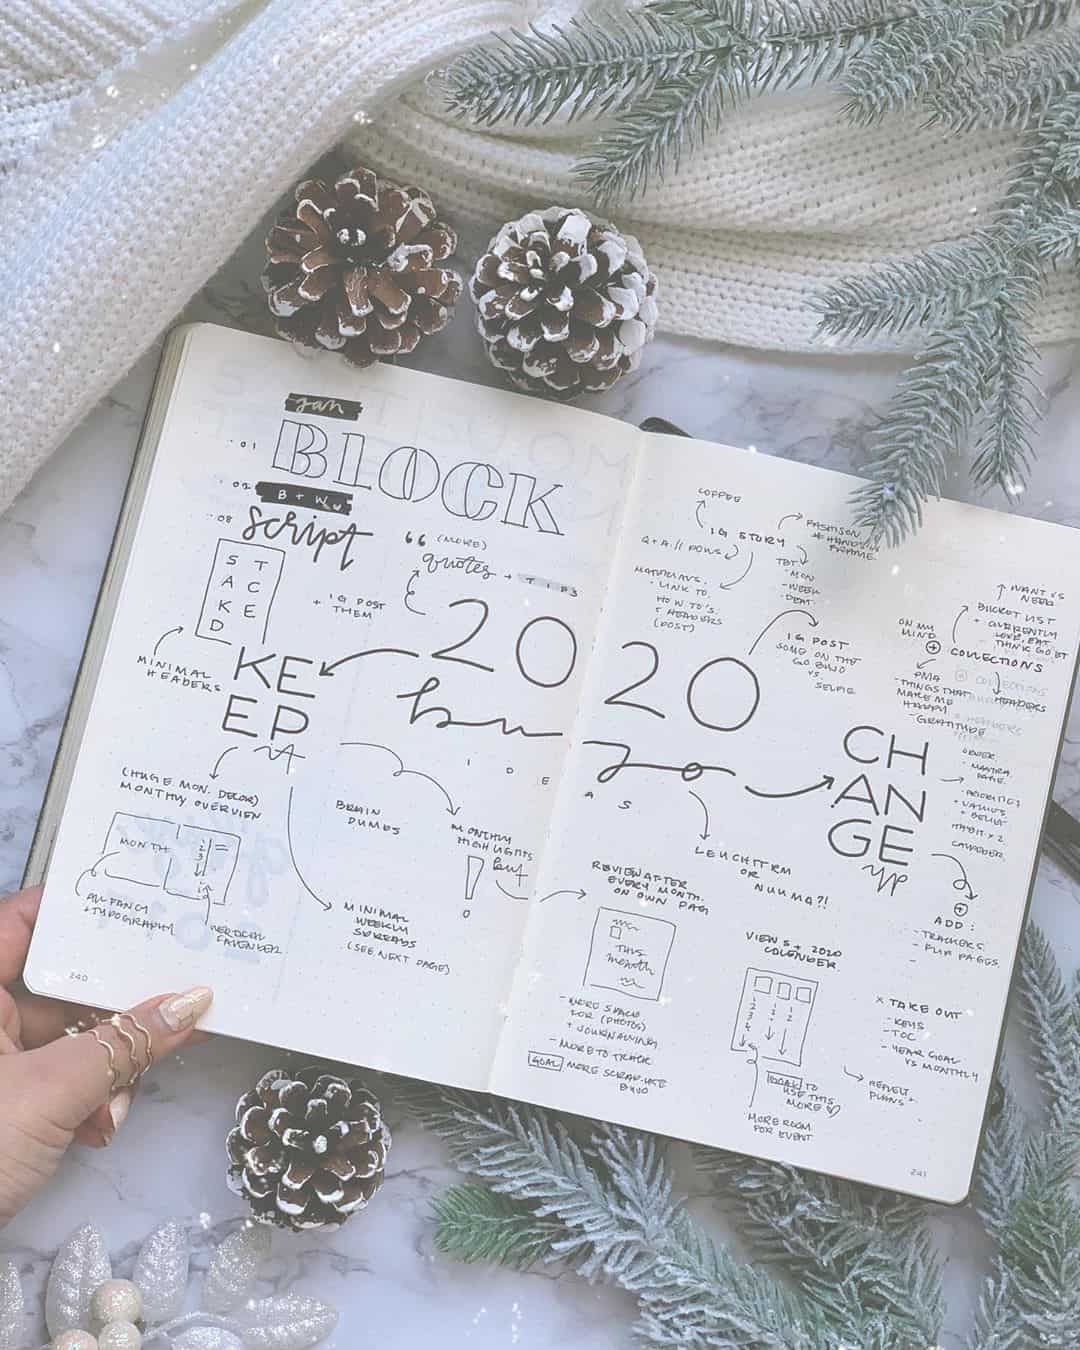 Jan
·01
BLOCK
·02
B + W
·03
script
STACKED
MINIMAL
HEADERS
+ IG POST
THEM
“ (MORE)
quotes + TIPS
2020
bujo
IDEAS
KE
EP
it
(HUGE MON. DECOR)
MONTHLY OVERVIEW
MONTH
1
2
3
ALL FANCY
+ TYPOGRAPHY
VERTICAL
CALENDER
BRAIN
DUMPS
MONTHLY
HIGHLIGHTS
but
MINIMAL
WEEKLY
SPREADS
(SEE NEXT PAGE)
240
COFFEE
IG STORY
Q+A // POWS
FASHION
# HANDS IN
FRAME
TBT
- MON
- WEEK
- DEAT.
MATERIALS.
- LINK TO
HOW TO'S.
+ HEADERS
(POST)
IG POST
SOME ON THE
GO BUJO
VS.
SELFIE
WANT VS
NEED
BUCKET LIST
+ CURRENTLY
LOVE, EAT
ON MY
MIND
COLLECTIONS
HEADERS
PMA
- THINGS THAT
MAKE ME
HAPPY
- GRATITUDE
CH
AN
GE
up
ORDER
- MANTRA
PAGE
- PRIORITIES
+ VALUES
+ BELIEF
HABIT x 2
CALENDER
LEUCHTTRM
OR
NUUNA?!
REVIEW AFTER
EVERY MONTH
ON OWN PAGE
THIS
month
- MORE SPACE
FOR (PHOTOS)
+ JOURNALING
- MORE TO TRACK
GOAL MORE SCRAP-USE
BUJO
VIEW 5 + 2020
CALENDER
1 1 1
2 2 2
3
4
GOAL TO
USE THIS
MORE
MORE ROOM
FOR EVENT
ADD:
- TRACKERS
- FLIP PAGES
-
x TAKE OUT
- KEYS
- TOC
- YEAR GOAL
VS MONTHLY
PLANS
241